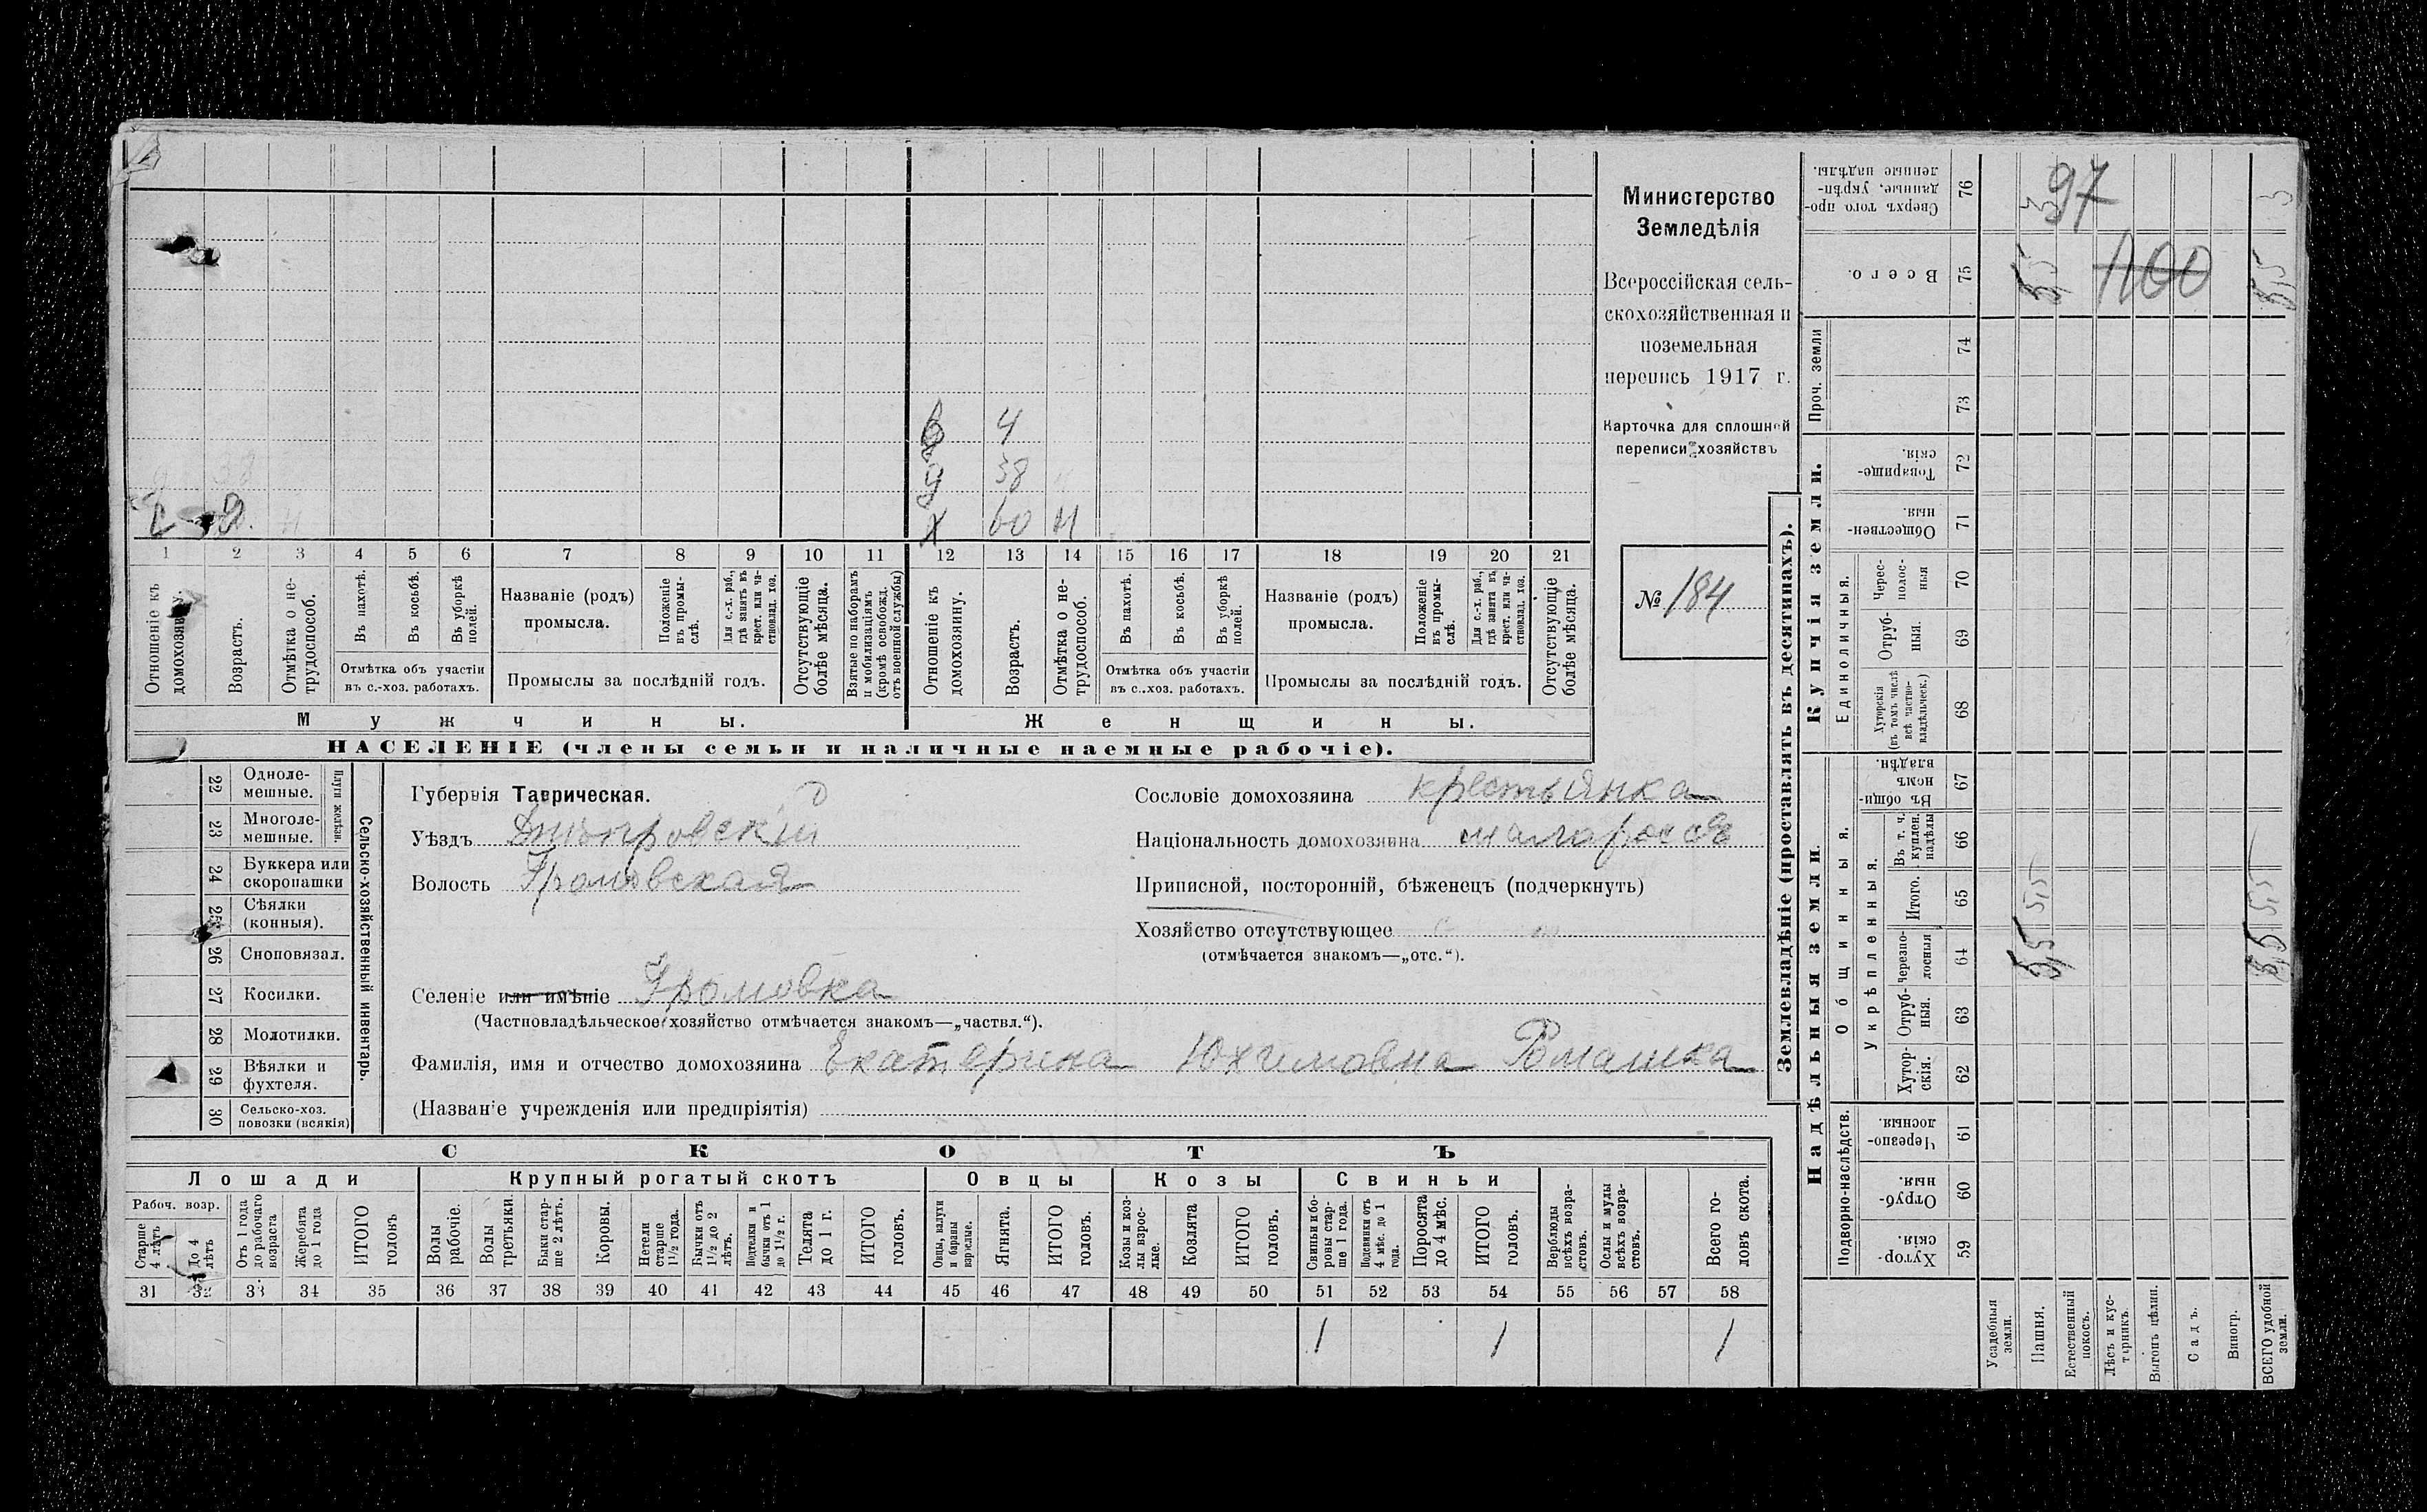 Министерство
Земледѣлія
Всероссійская сель-
скохозяйственная и
поземельная
перепись 1917 г.
Карточка для сплошной
переписи хозяйствъ
№ 184
в 4
38
2.
х 60 н
1 2 3 4 5 6 7 8 9 10 11 12 13 14 15 16 17 18 19 20 21
Отношеніе къ домохозяину.
Возрастъ.
Отмѣтка о не-трудоспособ.
Въ пахотѣ.
Въ косьбѣ.
Въ уборкѣ полей.
Отмѣтка объ участіи
въ с.-хоз. работахъ.
Названіе (родъ)
промысла.
Положеніе въ промы-слѣ.
Для с.-х. раб., гдѣ занятъ въ крест. или ча-стновлад. хоз.
Промыслы за послѣдній годъ.
Отсутствующіе болѣе мѣсяца.
Взятые по наборамъ и мобилизаціямъ (кромѣ освобожд. отъ военной службы)
Отношеніе къ домохозяину.
Возрастъ.
Отмѣтка о не-трудоспособ.
Въ пахотѣ.
Въ косьбѣ.
Въ уборкѣ полей.
Отмѣтка объ участіи
въ с.-хоз. работахъ.
Названіе (родъ)
промысла.
Положеніе въ промы-слѣ.
Для с.-х. раб., гдѣ занята въ крест. или ча-стновлад. хоз.
Промыслы за послѣдній годъ.
Отсутствующіе болѣе мѣсяца.
Мужчины.
Женщины.
НАСЕЛЕНІЕ (члены семьи и наличные наемные рабочіе).
Сельско-хозяйственный инвентарь.
Плуги желѣзн.
22 Одноле-мешные.
23 Многоле-мешные.
24 Буккера или скоропашки
25 Сѣялки (конныя).
26 Сноповязал.
27 Косилки.
28 Молотилки.
29 Вѣялки и фухтеля.
30 Сельско-хоз. повозки (всякія)
Губернія Таврическая.
Уѣздъ Днѣпровскій
Волость Громовская
Селеніе или имѣніе Громовка
(Частновладѣльческое хозяйство отмѣчается знакомъ—„частвл.“).
Фамилія, имя и отчество домохозяина Екатерина Юхимовна Ромашка
(Названіе учрежденія или предпріятія)
Сословіе домохозяина крестьянка
Національность домохозяина малоросся
Приписной, посторонній, бѣженецъ (подчеркнуть)
Хозяйство отсутствующее
(отмѣчается знакомъ—„отс.“).
СКОТЪ
Лошади
Крупный рогатый скотъ
Овцы
Козы
Свиньи
Рабоч. возр.
Старше 4 лѣтъ
До 4 лѣтъ
Отъ 1 года до рабочаго возраста
Жеребята до 1 года
ИТОГО головъ
Волы рабочіе.
Волы третьяки.
Быки стар-ше 2 лѣтъ.
Коровы.
Нетели старше 1½ года.
Бычки отъ 1½ до 2 лѣтъ.
Подтелки и бычки отъ 1 до 1½ г.
Телята до 1 г.
ИТОГО головъ.
Овцы, валухи и бараны взрослые.
Ягнята.
ИТОГО головъ.
Козы и коз-лы взрос-лые.
Козлята
ИТОГО головъ.
Свиньи и бо-ровы стар-ше 1 года.
Подсвинки отъ 4 мѣс. до 1 года.
Поросята до 4 мѣс.
ИТОГО головъ.
Верблюды всѣхъ возра-стовъ.
Ослы и мулы всѣхъ возра-стовъ.
Всего го-ловъ скота.
31 32 33 34 35 36 37 38 39 40 41 42 43 44 45 46 47 48 49 50 51 52 53 54 55 56 57 58
1 1 1
Землевладѣніе (проставлять въ десятинахъ).
Надѣльныя земли.
Купчія земли.
Проч. земли
Подворно-наслѣдств.
Общинныя.
Укрѣпленныя.
Единоличныя.
Хутор-скія. 59
Отруб-ныя. 60
Черезпо-лосныя. 61
Хутор-скія. 62
Отруб-ныя. 63
Черезпо-лосныя 64 5,5 5,5
Итого. 65 5,5 5,5
Въ т. ч. куплен. надѣлы 66
Въ общи-номъ владѣн. 67
Хуторскія (въ томъ числѣ всѣ частно-владѣльческ.) 68
Отруб-ныя. 69
Черес-полос-ныя 70
Обществен-ныя. 71
Товарище-скія. 72
73
74
Всего. 75 5,5 1100 5,5
Сверхъ того про-данные, укрѣп-ленные надѣлы. 76 3 97 3
Усадебныя земли.
Пашня.
Естественный покосъ.
Лѣсъ и кус-тарникъ.
Выгонъ цѣлин.
Садъ.
Виногр.
ВСЕГО удобной земли.